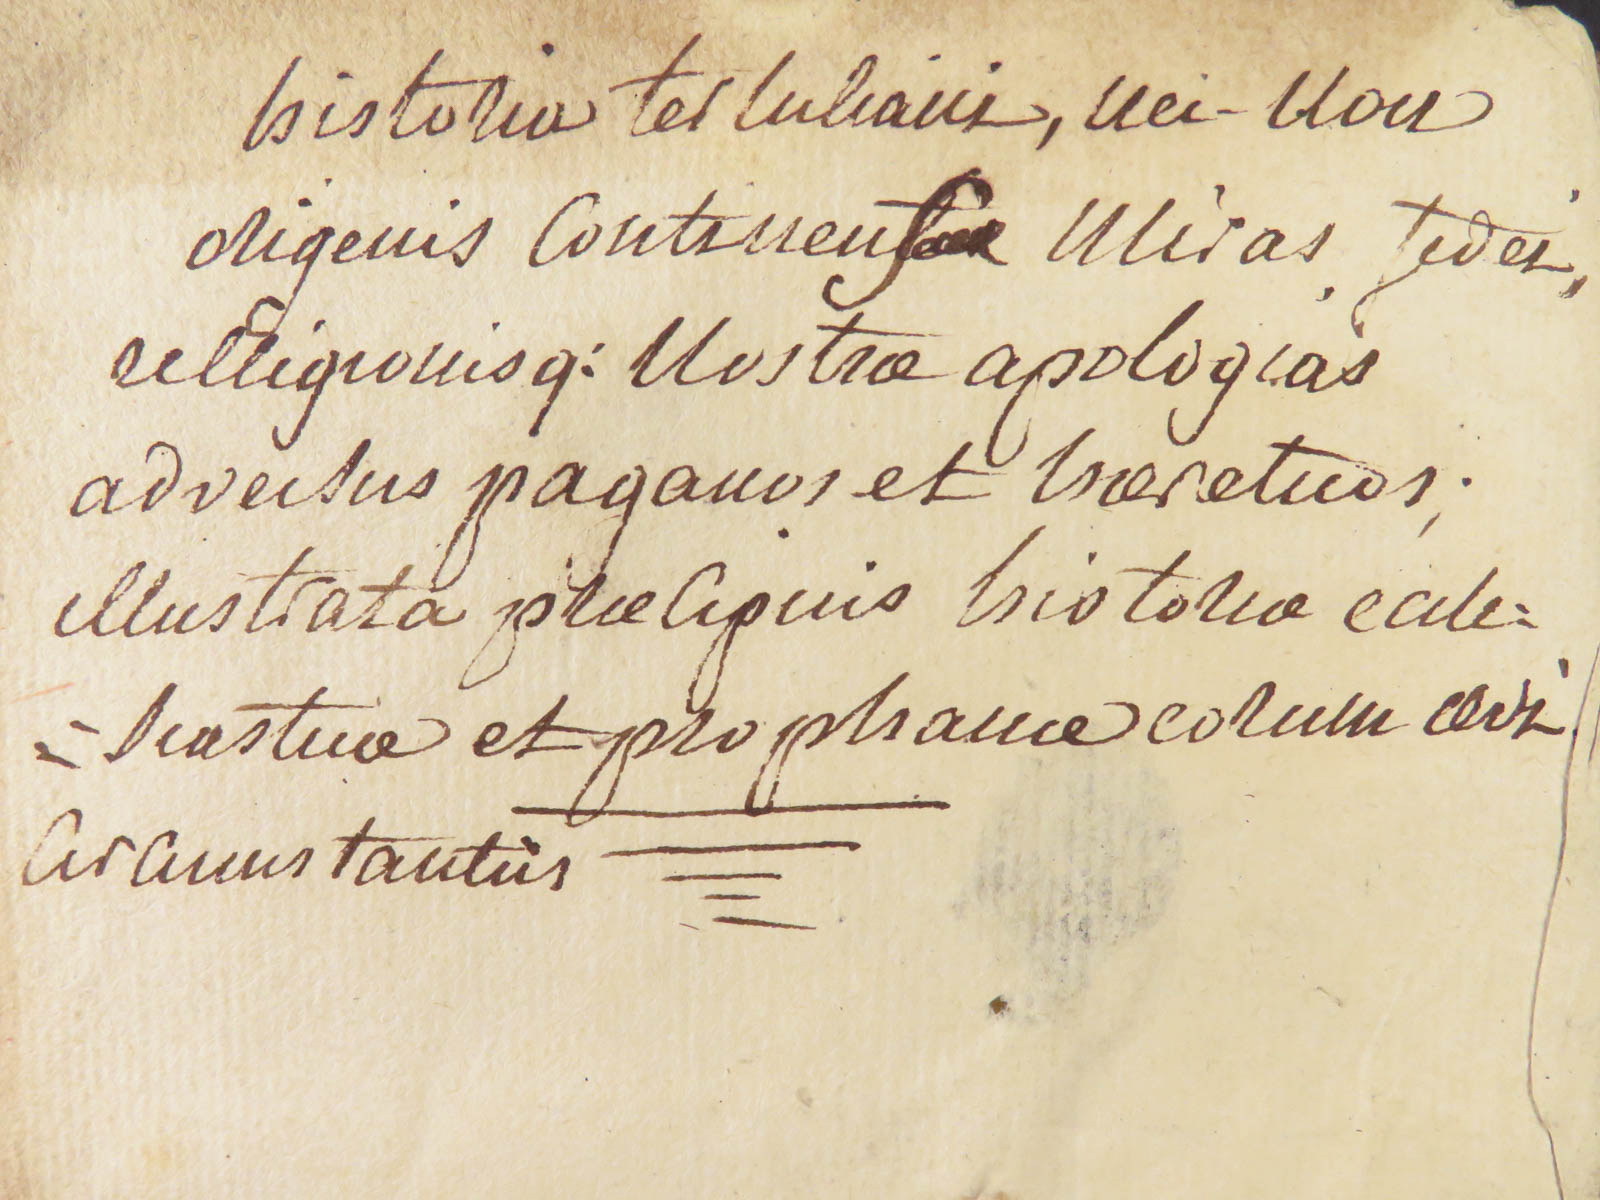 historia tertuliani, nec-non
origenis Continens Miras fidei,
relligionisq: Nostræ apologias
adversus paganos et hæreticos;
illustrata præcipuis historiæ eccle-
-siasticæ et prophanæ eorum ævi
Circumstantiis